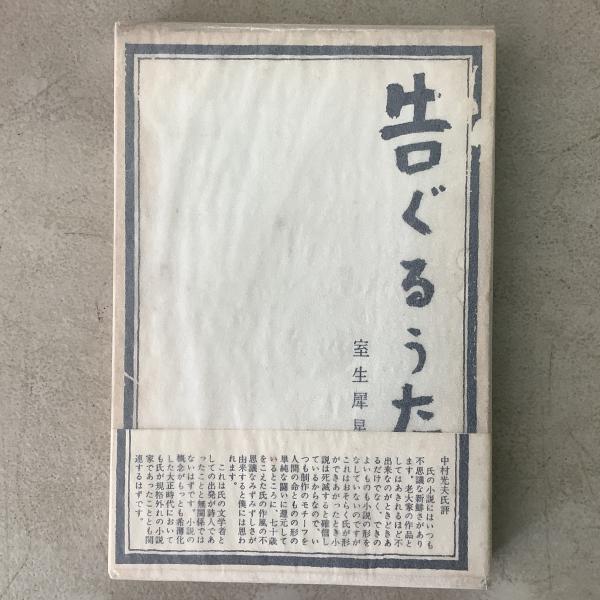 告ぐるうた
室生犀星
中村光夫氏評
氏の小説にはいつも
不思議な新鮮さがあり
ます。老大家の作品と
してはあきれるほど不
出来なのがときどきあ
るだけでなく、できの
よいものも小説の形を
なしていないのですが
これはおそらく氏が形
ができあがったとき小
説は死滅すると確信し
ているからなので、い
つも制作のモチーフを
人間の命とものの形の
単純な闘いに還元して
いるところに、七十歳
をこえた氏の作風の不
思議なみずみずしさが
由来すると僕には思わ
れます。
これは氏の文学者と
しての出発が詩人であ
ったことと無関係では
ないはずです。小説の
概念がもっとも希薄化
した大正時代において
も氏が規格外れの小説
家であったこととも関
連するはずです。